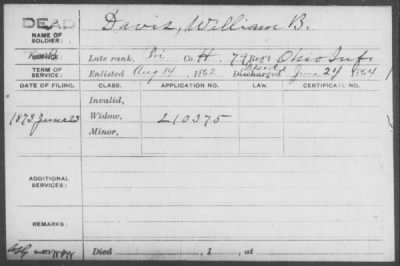 DEAD Davis, William B.
NAME OF SOLDIER:
Late rank, Pri Co. H, 79 Reg't Ohio Inf.
TERM OF SERVICE: Enlisted Aug 14, 1862 Discharged June 24 1864
DATE OF FILING. CLASS. APPLICATION NO. LAW. CERTIFICATE NO.
Invalid,
1873 June 23 Widow, 210375
Minor,
ADDITIONAL SERVICES:
REMARKS:
Died , 1 , at